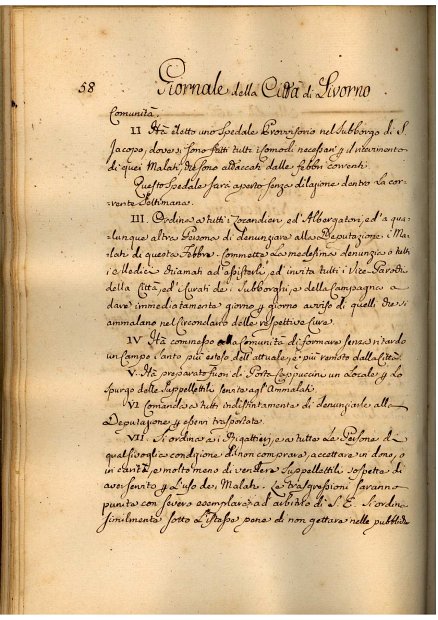 58
Giornale della Città di Livorno
Comunità.
II Hà eletto uno Spedale Provvisorio nel Subborgo di S.
Jacopo, dove si sono fatti tutti i comodi necessari p. il ricevimento
di quei Malati, che sono attaccati dalle febbri correnti.
Questo Spedale sarà aperto senza dilazione dentro la cor-
rente Settimana.
III. Ordina a tutti i Locandieri, ed' Albergatori, ed' a qua-
lunque altra Persona di denunziare alla Deputazione i Ma-
lati di questa Febbre. Commette la medesima denunzia a tutti
i Medici chiamati ad assisterli, ed' invita tutti i Vice-Parochi
della Città, ed' Curati de i Subborghi, e della Campagna a
dare immediatamente giorno p. giorno avviso di quelli che si
ammalano nel Circondario delle respettive Cure.
IV Hà commesso alla Comunità di formare senza ritardo
un Campo Santo più esteso dell'attuale, e più remoto dalla Città.
V. Hà preparato fuori di Porta Cappuccini un Locale p. lo
Spurgo delle Suppellettili servite agl'Ammalati.
VI Comanda a tutti indistintamente di denunziarle alla
Deputazione p. essere trasportate.
VII. Si ordina a i Rigattieri, e a tutte le Persone di
qualsivoglia condizione di non comprare, accettare in dono, o
in carità, e molto meno di vendere Suppellettili sospette di
aver servito p. l'uso de i Malati. Le trasgressioni saranno
punite con severo esemplare ad' arbitrio di S. E. S'ordina
similmente sotto l'istesse pene di non gettare nelle pubbliche